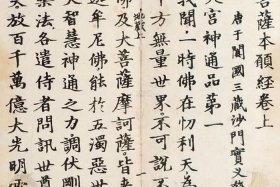 菩薩本願經卷上
唐于闐國三藏沙門實叉
天宮神通品第一
我聞一時佛在忉利天
十方無量世界不可說不
佛及大菩薩摩訶薩皆
牟尼佛能於五濁惡世
大智慧神通之力調伏剛
樂法各遣侍者問訊世尊
放百千萬億大光明雲